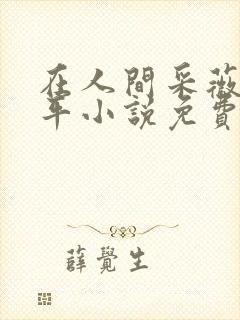 在人間采薇
年小說免費
薛覺生